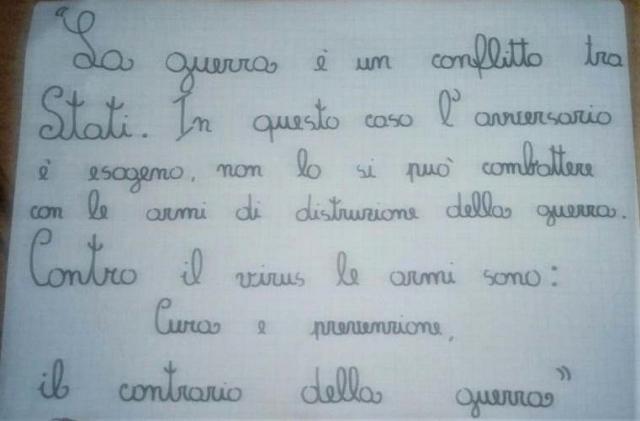 “La guerra è un conflitto tra
Stati. In questo caso l'avversario
è esogeno, non lo si può combattere
con le armi di distruzione della guerra.
Contro il virus le armi sono:
Cura e prevenzione,
il contrario della guerra”